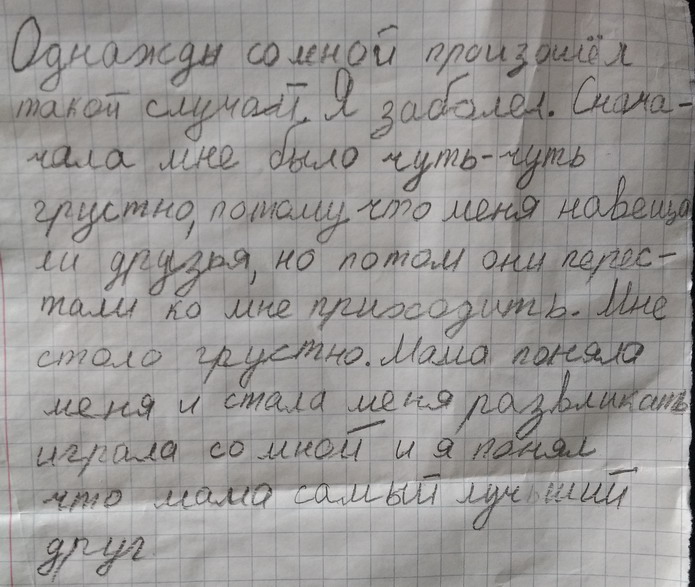 Однажды со мной произошёл
такой случай. Я заболел. Снача-
чала мне было чуть-чуть
грустно, потому что меня навеща
ли друзья, но потом они перес-
тали ко мне приходить. Мне
стало грустно. Мама поняла
меня и стала меня развликать
играла со мной и я понял
что мама самый лучьший
друг